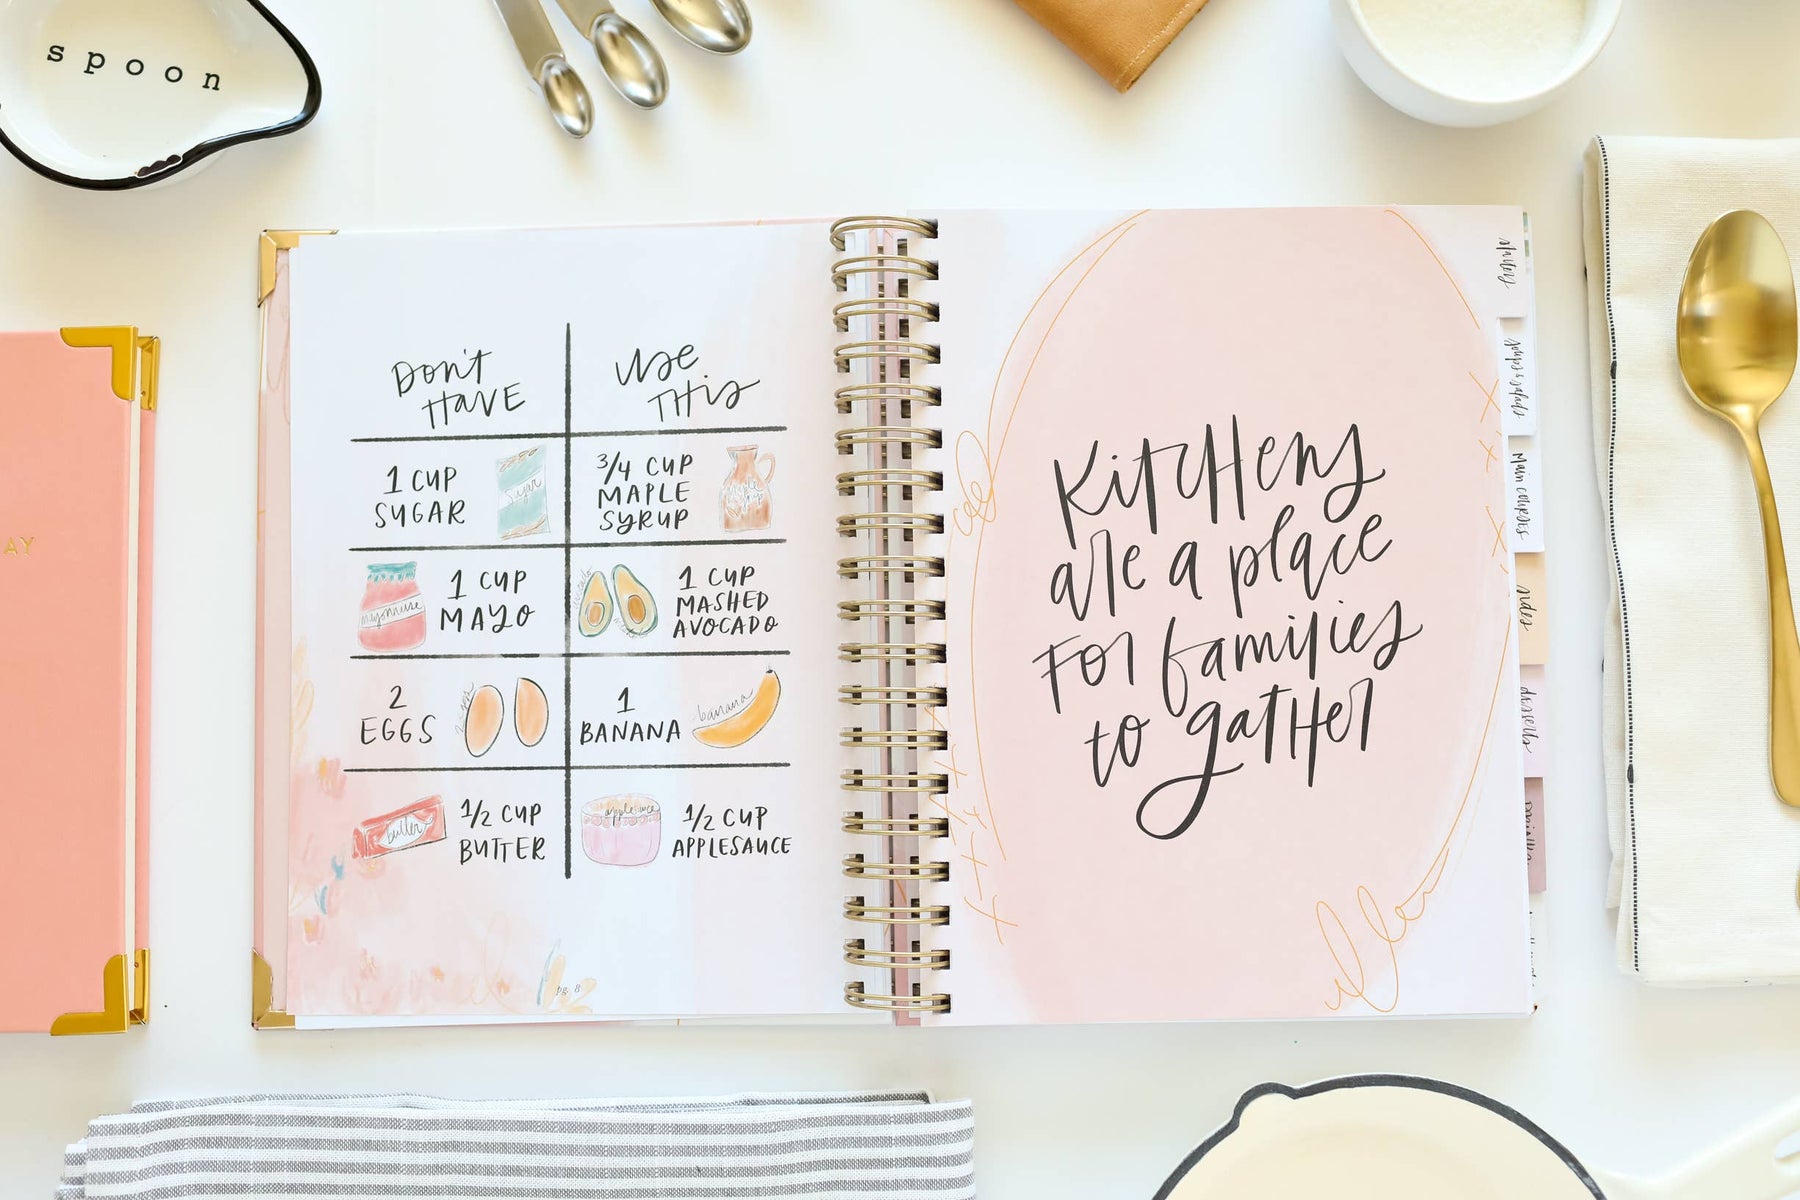 spoon
AY
Don't
Have
Use
This
1 CUP
SUGAR
Sugar
3/4 CUP
MAPLE
SYRUP
mayonnaise
1 CUP
MAYO
avocado
1 CUP
MASHED
AVOCADO
2
EGGS
1
BANANA
banana
butter
1/2 CUP
BUTTER
applesauce
1/2 CUP
APPLESAUCE
pg. 8
Kitchens
are a place
for families
to gather
soups & salads
Main courses
sides
desserts
DRINKS